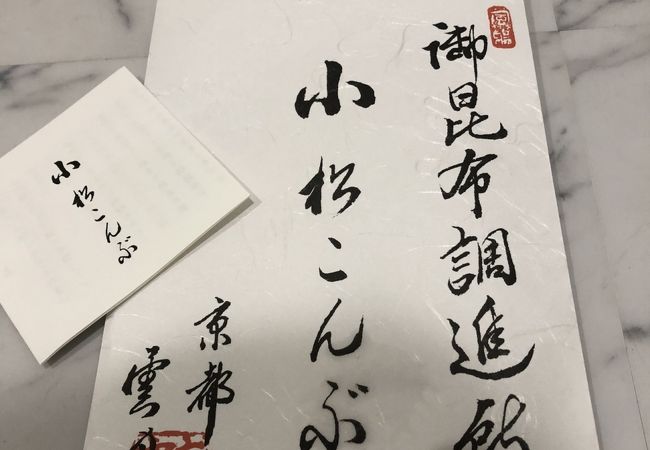 御昆布調進所
小松こんぶ
京都
雲
小松こんぶ